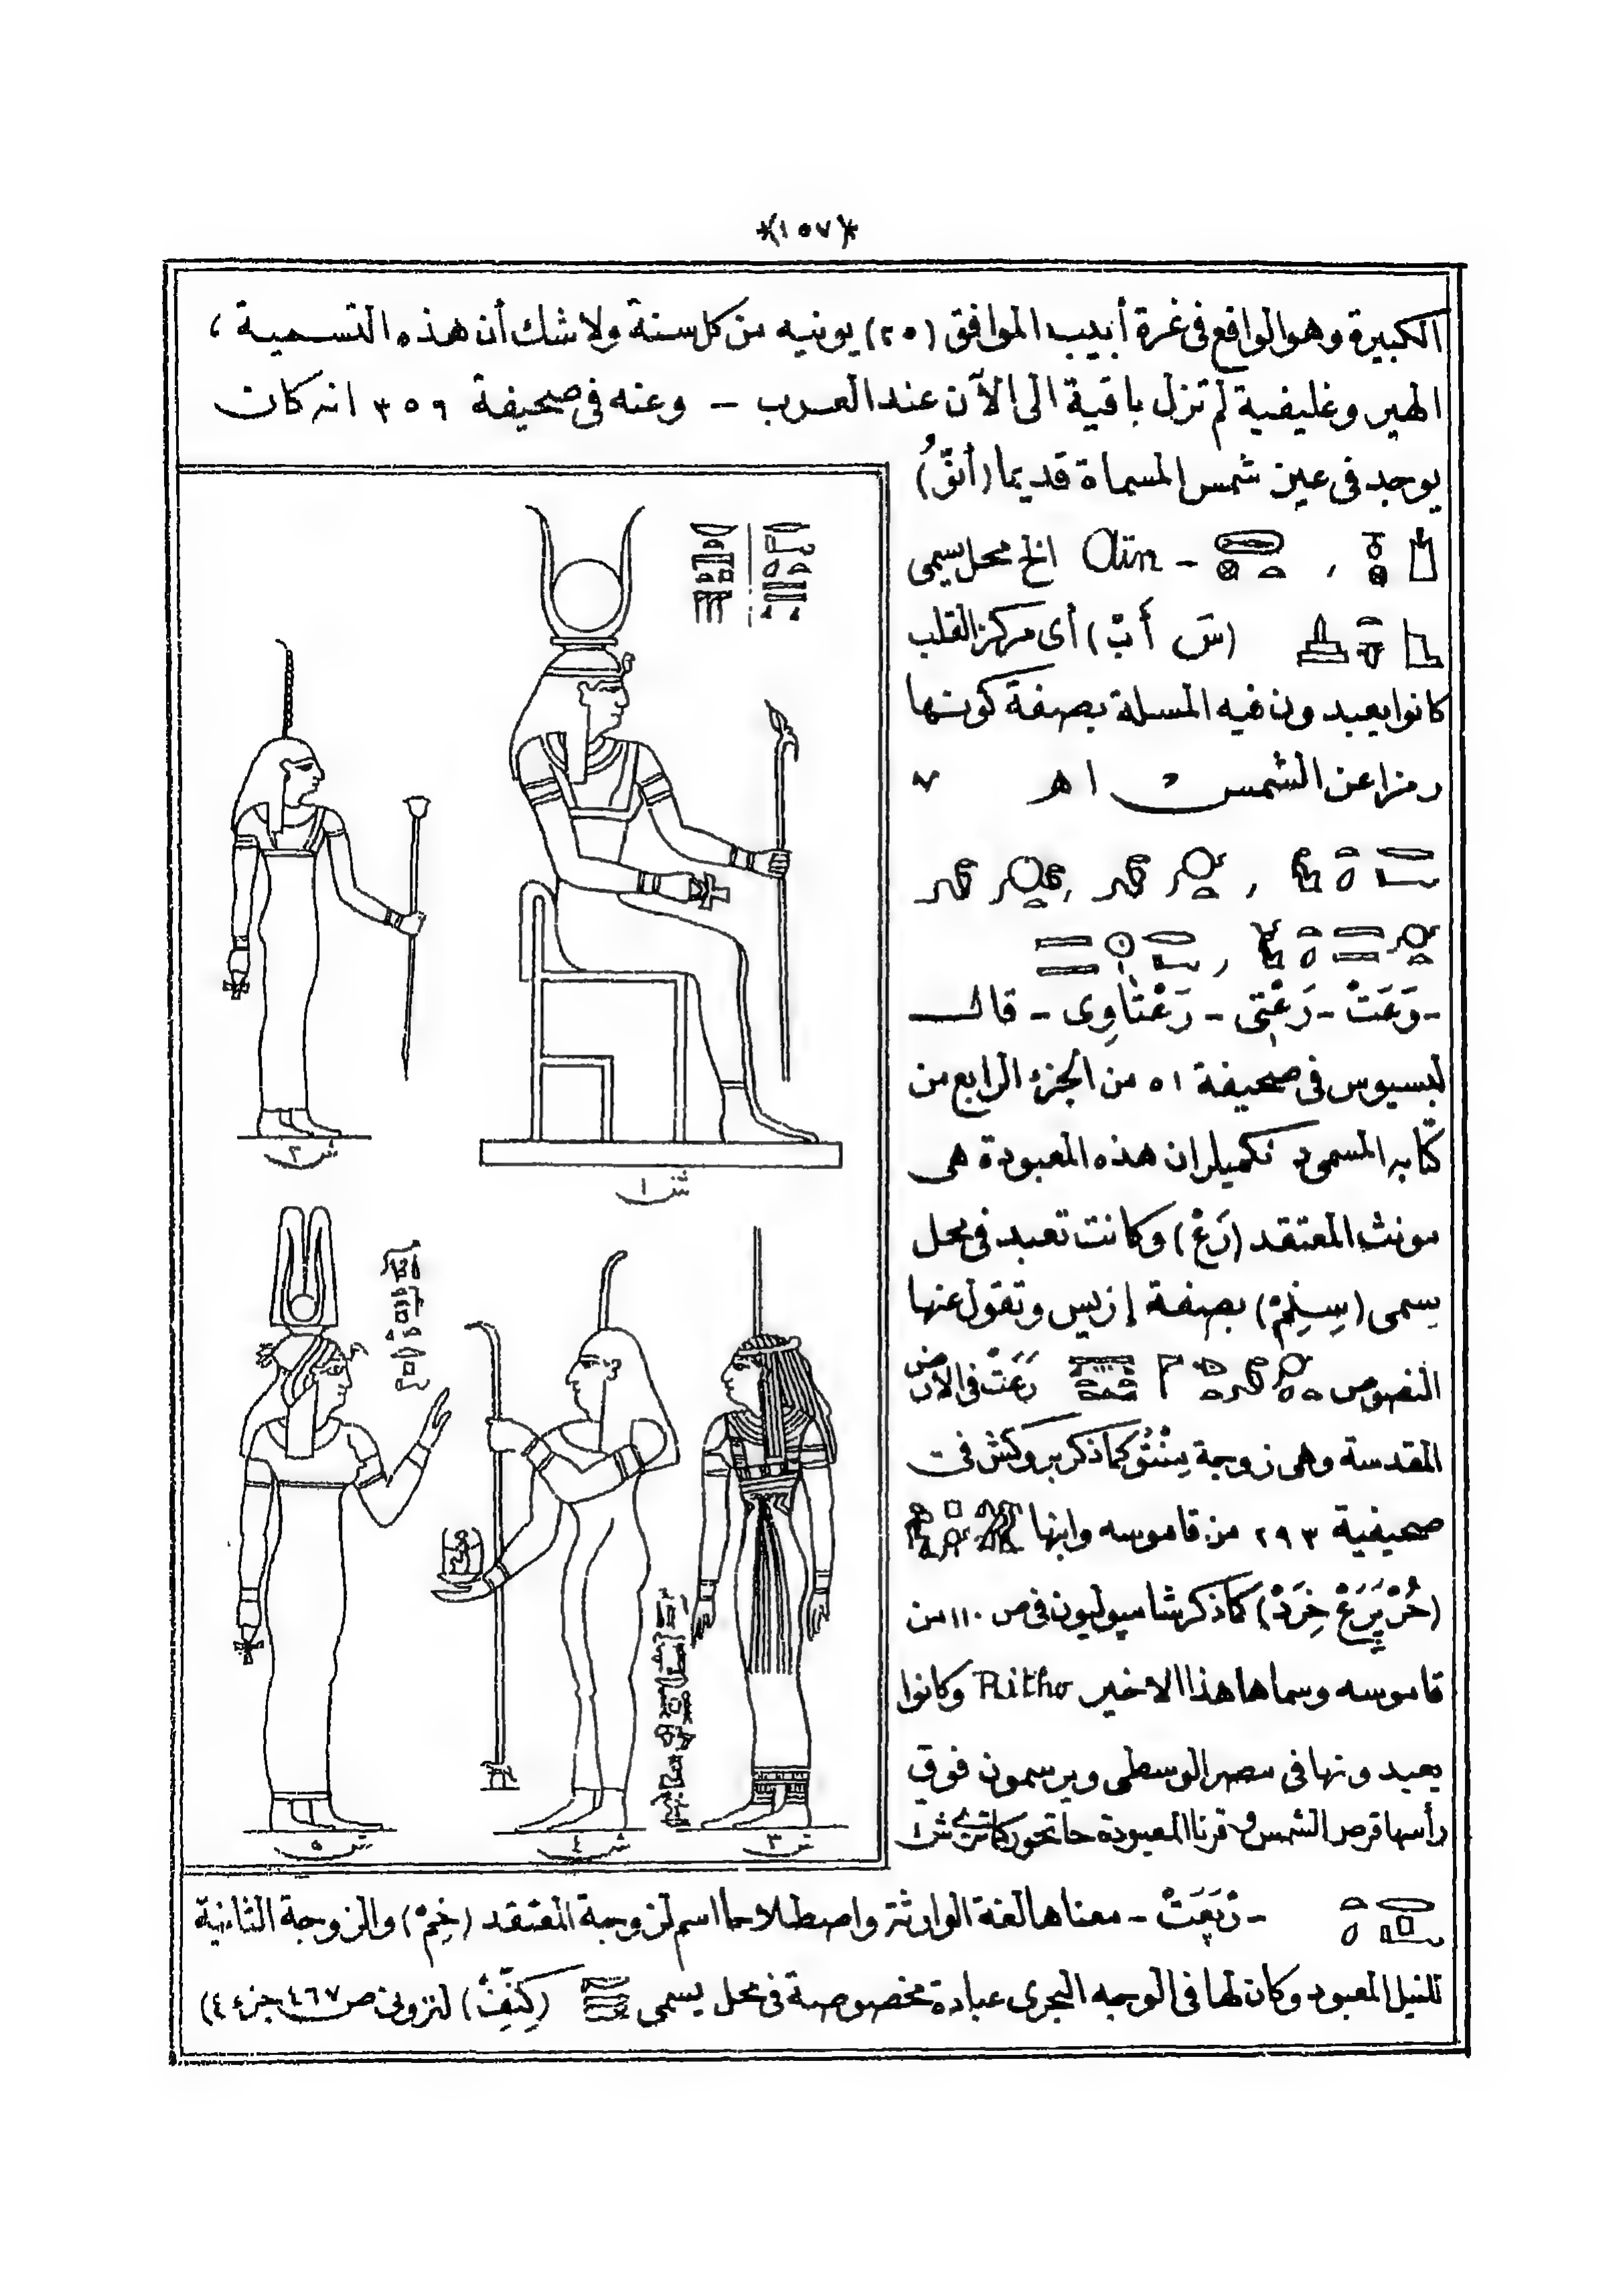 *(١٥٧)*
الكبيرة وهو الواقع فى غرة أبيب الموافق (٢٥) يونيه من كل سنة ولا شك أن هذه التسمية ،
الهير وغليفية لم تزل باقية الى الآن عند العرب - وعنه فى صحيفة ٣٥٩ انه كان
يوجد فى عين شمس المسماة قديما (أنقُ)
- الخ محل يسمى
(سَ أَبْ) أى مركز القلب
كانوا يعبدون فيه المسلة بصفة كونها
رمزا عن الشمس ا هـ
-رَعَتْ - رَعْتِى - رَعْتَاوِى - قال
لبسيوس فى صحيفة ٥١ من الجزء الرابع من
كتابه المسمى دنكميلر ان هذه المعبودة هى
مونث المعتقد (رَعْ) وكانت تعبد فى محل
يسمى (سِلِمْ) بصفة إزيس وتقول عنها
النصوص رَعَتْ فى الارض
المقدسة وهى زوجة مِنْتُو كما ذكر بروكش فى
صحيفية ٢٩٣ من قاموسه وابنها
(حُرْ پِرَعْ خِرَدْ) كما ذكر شامپوليون فى ص ١١٠ من
قاموسه وسماها هذا الاخير Ritho وكانوا
يعبدونها فى مصر الوسطى ويرسمون فوق
رأسها قرص الشمس وقرنا المعبودة حاتحور كما ترى ش ١
- رْپَعَتْ - معناها لغة الوارثة واصطلاحا اسم لزوجة المعتقد (خِمْ) والزوجة الثانية
للنيل المعبود وكان لها فى الوجه البحرى عبادة مخصوصة فى محل يسمى لنزونى ص ٤٦٧ جزء ٤)
ش ١
ش ٢
ش ٣
ش ٤
ش ٥